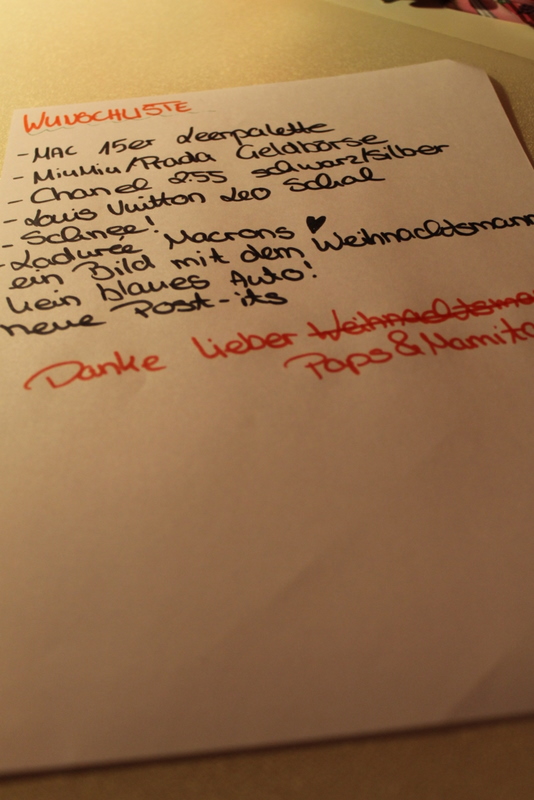 WUNSCHLISTE
- MAC 15er Leerpalette
- MiuMiu/Prada Geldbörse
- Chanel 2.55 schwarz/silber
- Louis Vuitton Leo Schal
- Schnee!
- Laduree Macrons ♥
ein Bild mit dem Weihnachtsmann
kein blaues Auto!
neue Post-its
Danke lieber Weihnachtsma
Paps & Mamita